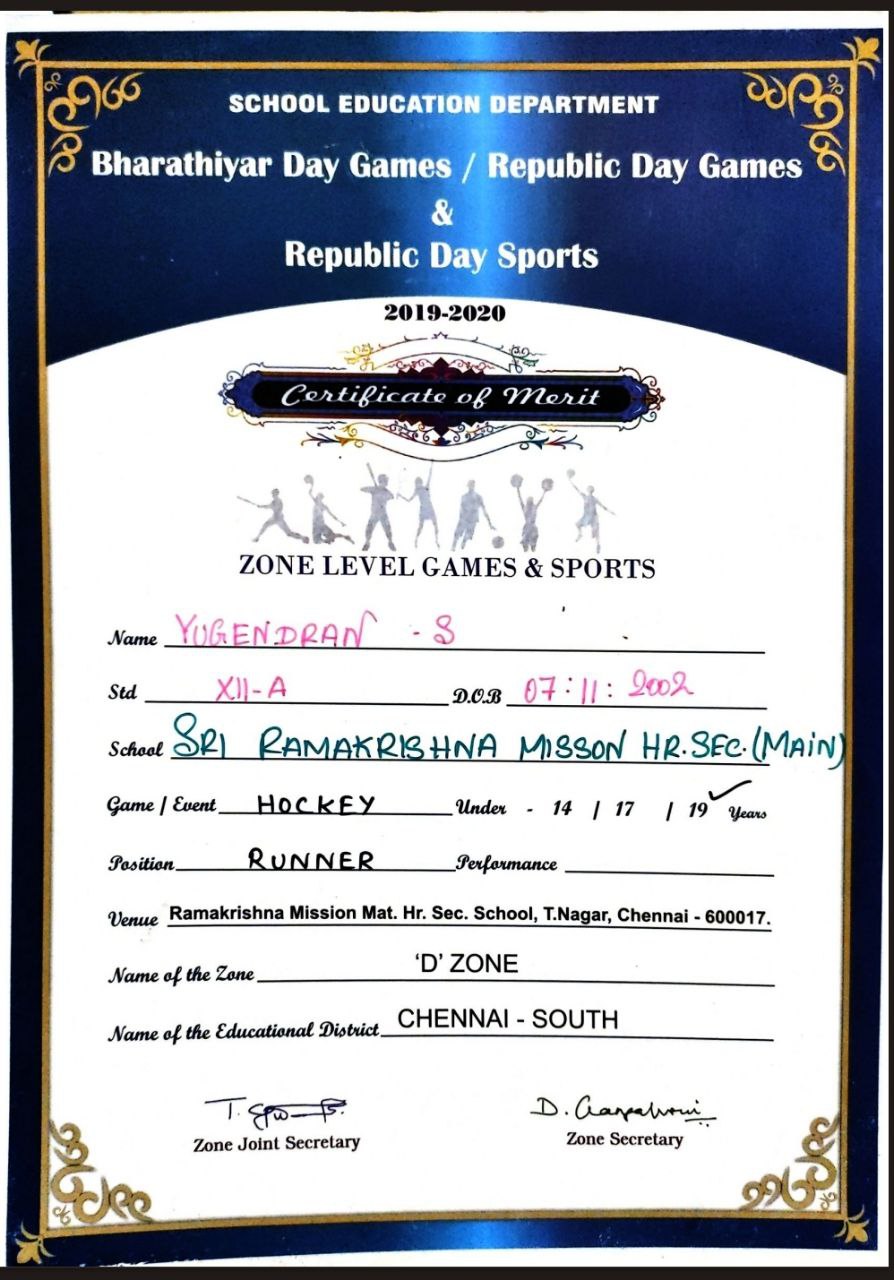 SCHOOL EDUCATION DEPARTMENT
Bharathiyar Day Games / Republic Day Games
&
Republic Day Sports
2019-2020
Certificate of Merit
ZONE LEVEL GAMES & SPORTS
Name YUGENDRAN - S
Std XII-A D.O.B 07:11:2002
School SRI RAMAKRISHNA MISSON HR.SEC.(MAIN)
Game / Event HOCKEY Under - 14 / 17 / 19 Years
Position RUNNER Performance
Venue Ramakrishna Mission Mat. Hr. Sec. School, T.Nagar, Chennai - 600017.
Name of the Zone 'D' ZONE
Name of the Educational District CHENNAI - SOUTH
Zone Joint Secretary Zone Secretary